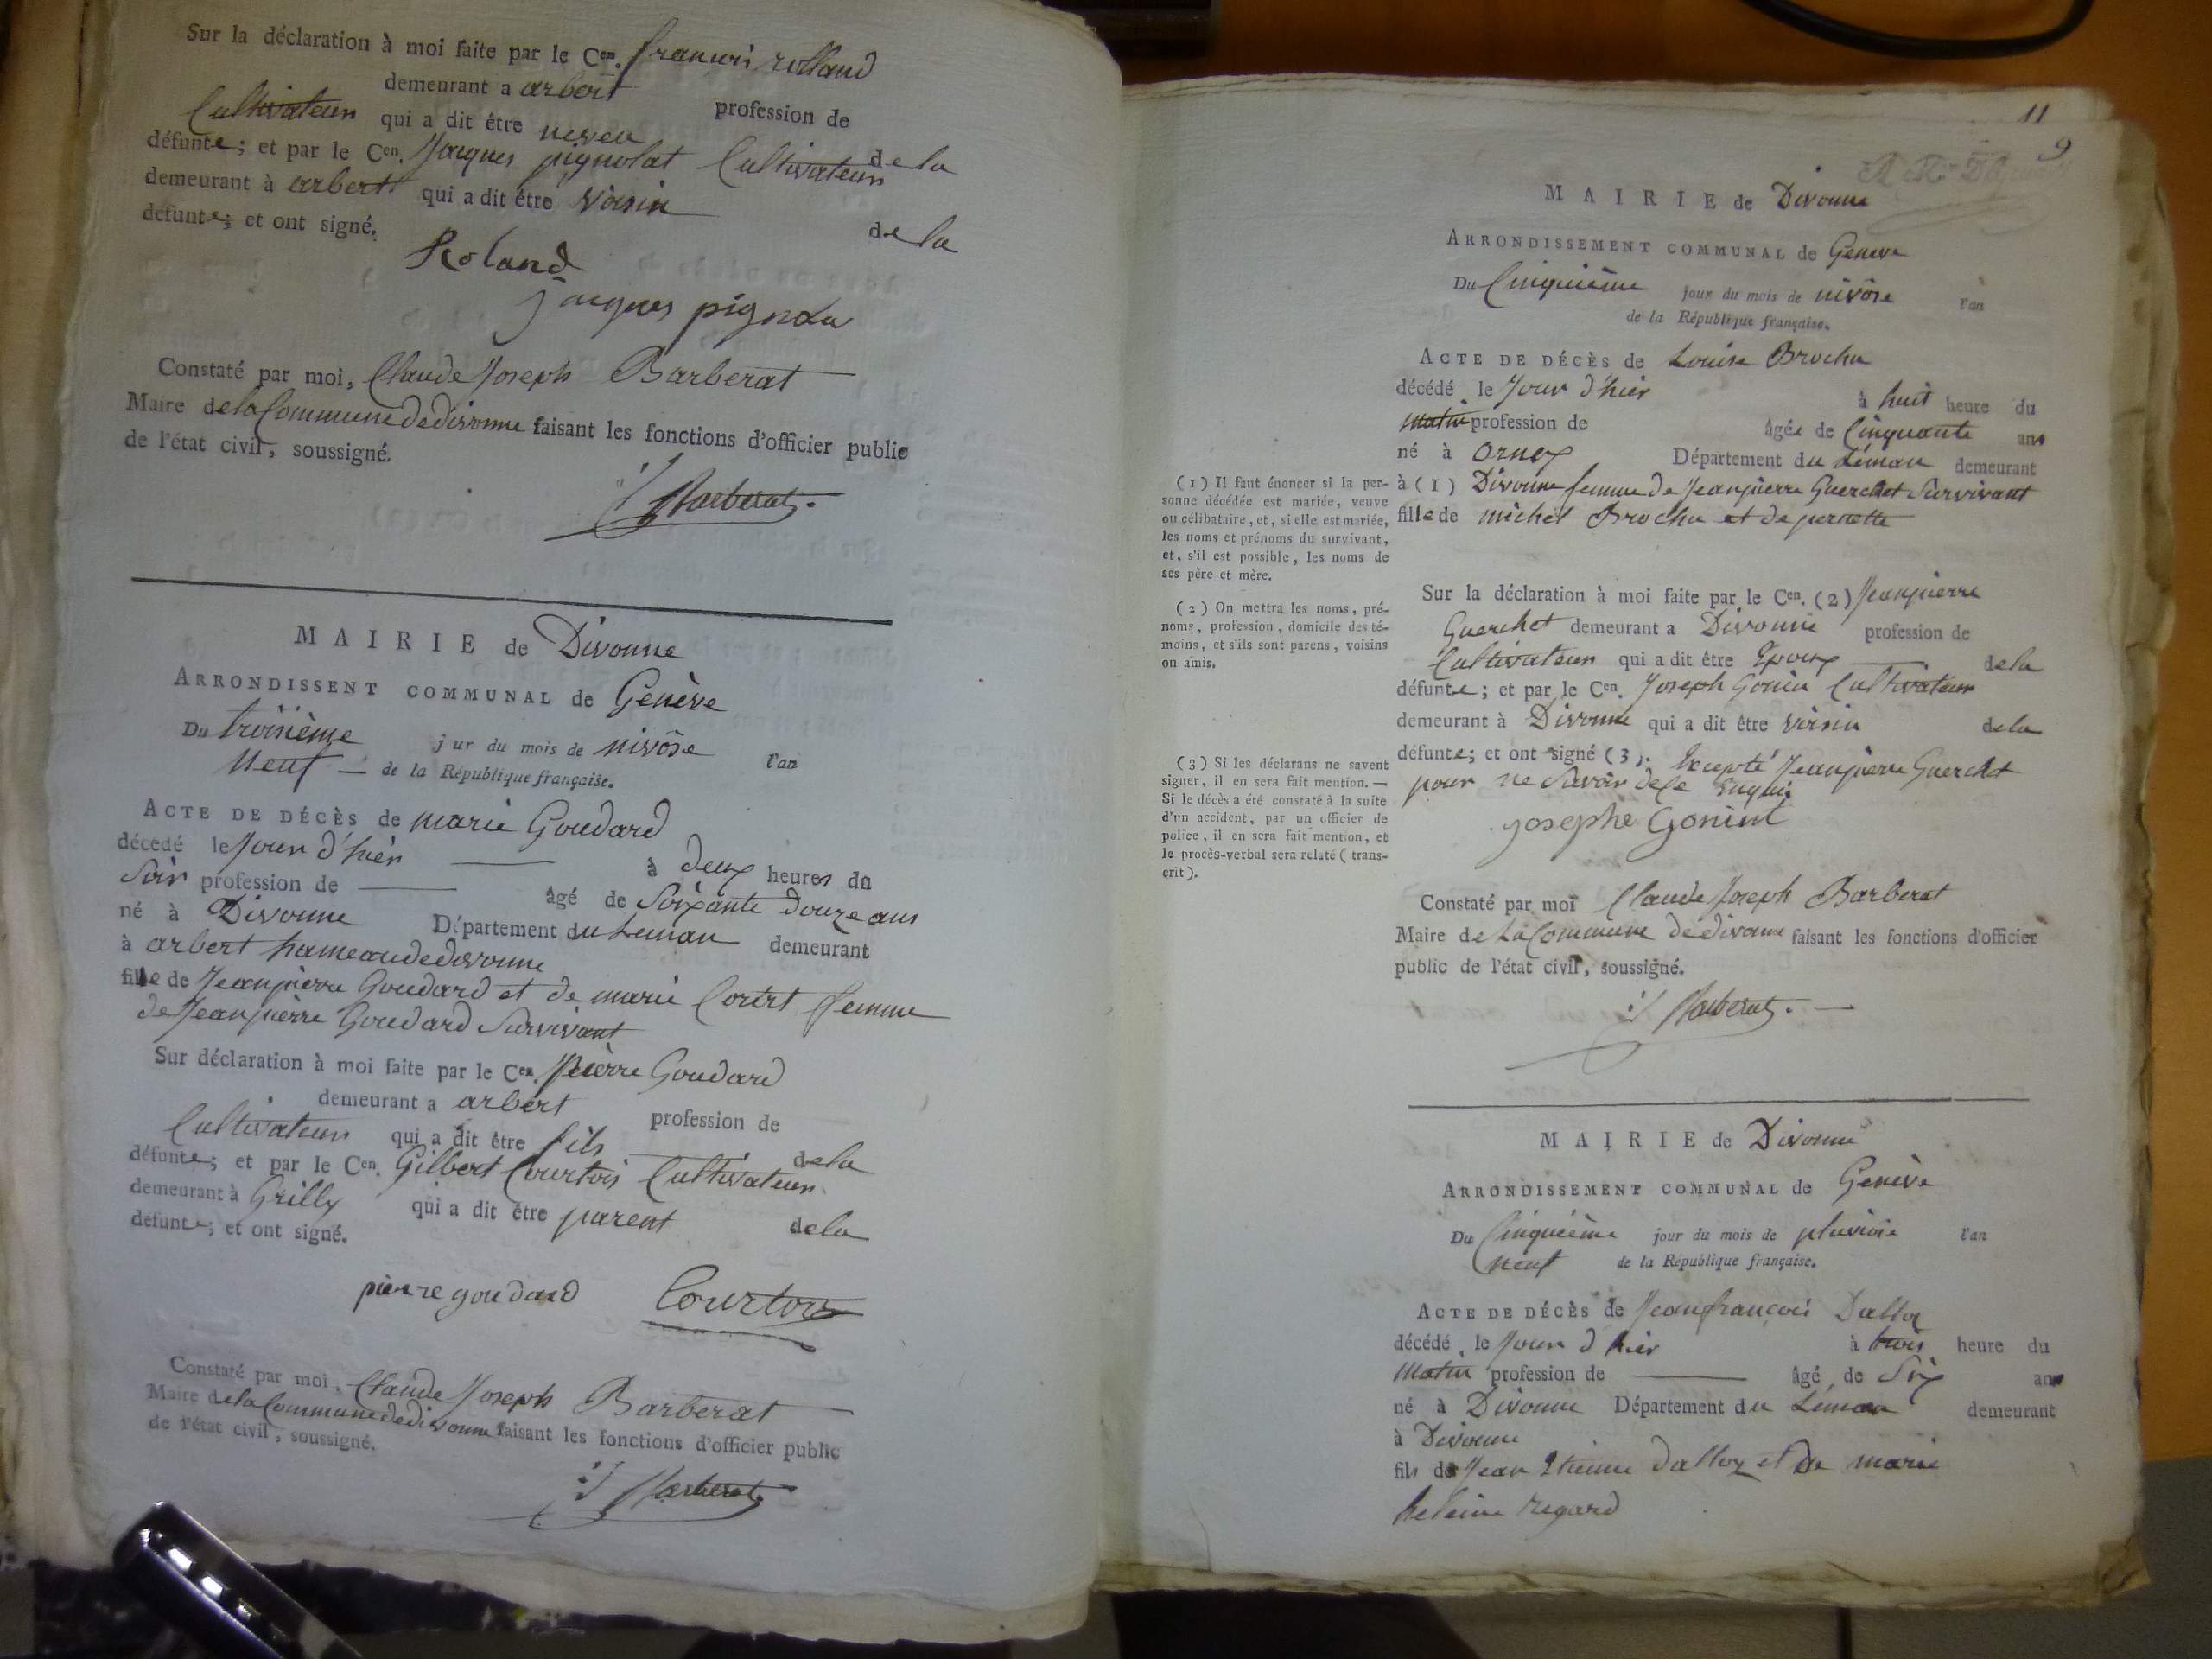 Sur la déclaration à moi faite par le Cen. francois rolland
demeurant a arbert profession de
Cultivateur qui a dit être neveu de la
défunte; et par le Cen. Jacques pignolat Cultivateur
demeurant à arbert qui a dit être voisin de la
défunte; et ont signé.
Roland
jacques pignola
Constaté par moi, Claude Joseph Barberat
Maire de la Commune de divonne faisant les fonctions d'officier public
de l'état civil, soussigné.
Barberat.
MAIRIE de Divonne
ARRONDISSENT COMMUNAL de Genève
Du troisième jur du mois de nivôse l'an
Neuf — de la République française.
ACTE DE DÉCÈS de marie Goudard
décédé le Jour d'hier à deux heures du
Soir profession de âgé de Soixante douze ans
né à Divonne Département du Leman demeurant
à arbert hameau de divonne
fille de Jeanpierre Goudard et de marie femme
de Jeanpierre Goudard Survivant
Sur déclaration à moi faite par le Cen. Pierre Goudard
demeurant a arbert profession de
Cultivateur qui a dit être fils de la
défunte; et par le Cen. Gilbert Courtois Cultivateur
demeurant à Grilly qui a dit être parent de la
défunte; et ont signé.
pierre goudard Courtois
Constaté par moi, Claude Joseph Barberat
Maire de la Commune de divonne faisant les fonctions d'officier public
de l'état civil, soussigné.
Barberat
11
9
MAIRIE de Divonne
ARRONDISSEMENT COMMUNAL de Geneve
Du Cinquième jour du mois de nivôse l'an
de la République française.
ACTE DE DÉCÈS de Louise Brochu
décédé le Jour d'hier à huit heure du
matin profession de âgée de Cinquante ans
né à Ornex Département du Léman demeurant
à (1) Divonne femme de Jeanpierre Guerchet Survivant
fille de michel Brochu et de pernette
(1) Il faut énoncer si la per-
sonne décédée est mariée, veuve
ou célibataire, et, si elle est mariée,
les noms et prénoms du survivant,
et, s'il est possible, les noms de
ses père et mère.
Sur la déclaration à moi faite par le Cen. (2) Jeanpierre
Guerchet demeurant a Divonne profession de
Cultivateur qui a dit être Epoux de la
défunte; et par le Cen. Joseph Gonin Cultivateur
demeurant à Divonne qui a dit être voisin de la
défunte; et ont signé (3). Excepté Jeanpierre Guerchet
pour ne Savoir de ce Enquis
josephe Gonint
(2) On mettra les noms, pré-
noms, profession, domicile des té-
moins, et s'ils sont parens, voisins
ou amis.
(3) Si les déclarans ne savent
signer, il en sera fait mention. —
Si le décès a été constaté à la suite
d'un accident, par un officier de
police, il en sera fait mention, et
le procès-verbal sera relaté (trans-
crit).
Constaté par moi Claude Joseph Barberat
Maire de La Commune de divonne faisant les fonctions d'officier
public de l'état civil, soussigné.
Barberat. —
MAIRIE de Divonne
ARRONDISSEMENT COMMUNAL de Genève
Du Cinquième jour du mois de pluviose l'an
neuf de la République française.
ACTE DE DÉCÈS de Jeanfrançois Dalloz
décédé le Jour d hier à trois heure du
matin profession de âgé de Six ans
né à Divonne Département du Léman demeurant
à Divonne
fils de Jean Etienne Dalloz et de marie
heleine regard